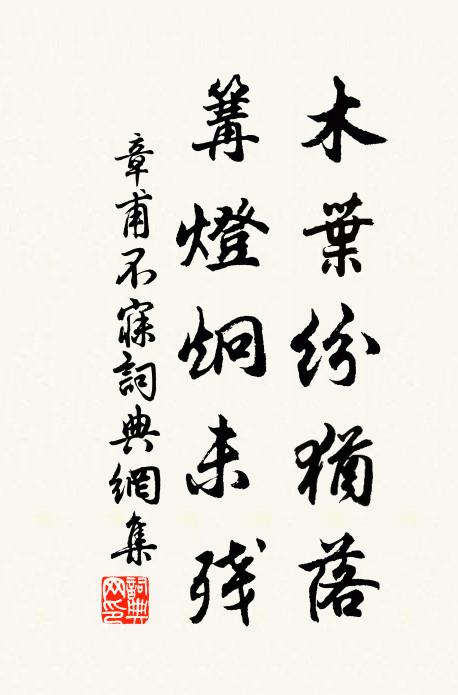 木葉紛猶落
篝燈炯未残
章甫不寐詞典網集
詞典网印